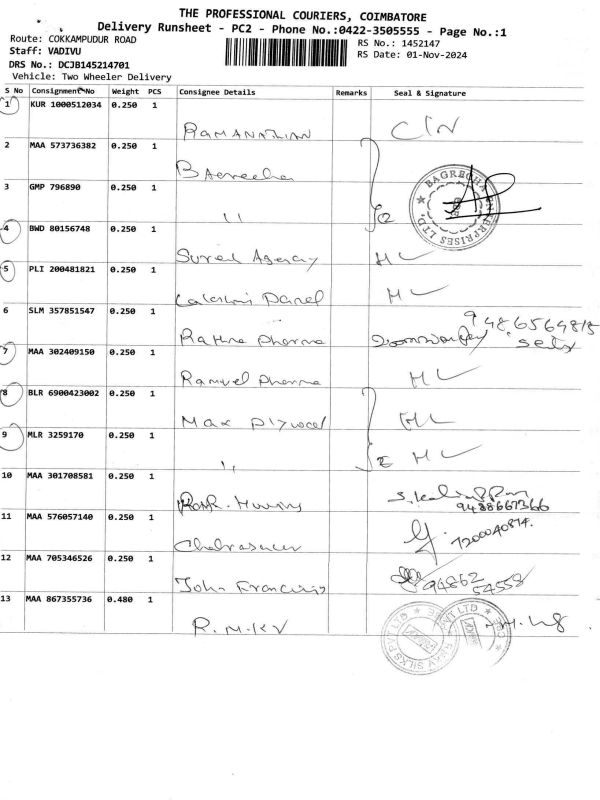 THE PROFESSIONAL COURIERS, COIMBATORE
Delivery Runsheet - PC2 - Phone No.:0422-3505555 - Page No.:1
Route: COKKAMPUDUR ROAD
RS No.: 1452147
Staff: VADIVU
RS Date: 01-Nov-2024
DRS No.: DCJB145214701
Vehicle: Two Wheeler Delivery
S No Consignment No Weight PCS Consignee Details Remarks Seal & Signature
1 KUR 1000512034 0.250 1
RAMANATHAN
2 MAA 573736382 0.250 1
Bagreecha
3 GMP 796890 0.250 1
11
BAGRECHA ENTERPRISES LTD.
4 BWD 80156748 0.250 1
Agency H L
5 PLI 200481821 0.250 1
Lakshmi Panel H L
6 SLM 357851547 0.250 1
9486564815
Rathna Pharma
7 MAA 302409150 0.250 1
Pharma H L
8 BLR 6900423002 0.250 1
Max Plywood H L
9 MLR 3259170 0.250 1
11 H L
10 MAA 301708581 0.250 1
9488667366
11 MAA 576057140 0.250 1
7200040874.
12 MAA 705346526 0.250 1
John Francis 94862
54558
13 MAA 867355736 0.480 1
R.M.KV
SILKS PVT LTD PVT LTD